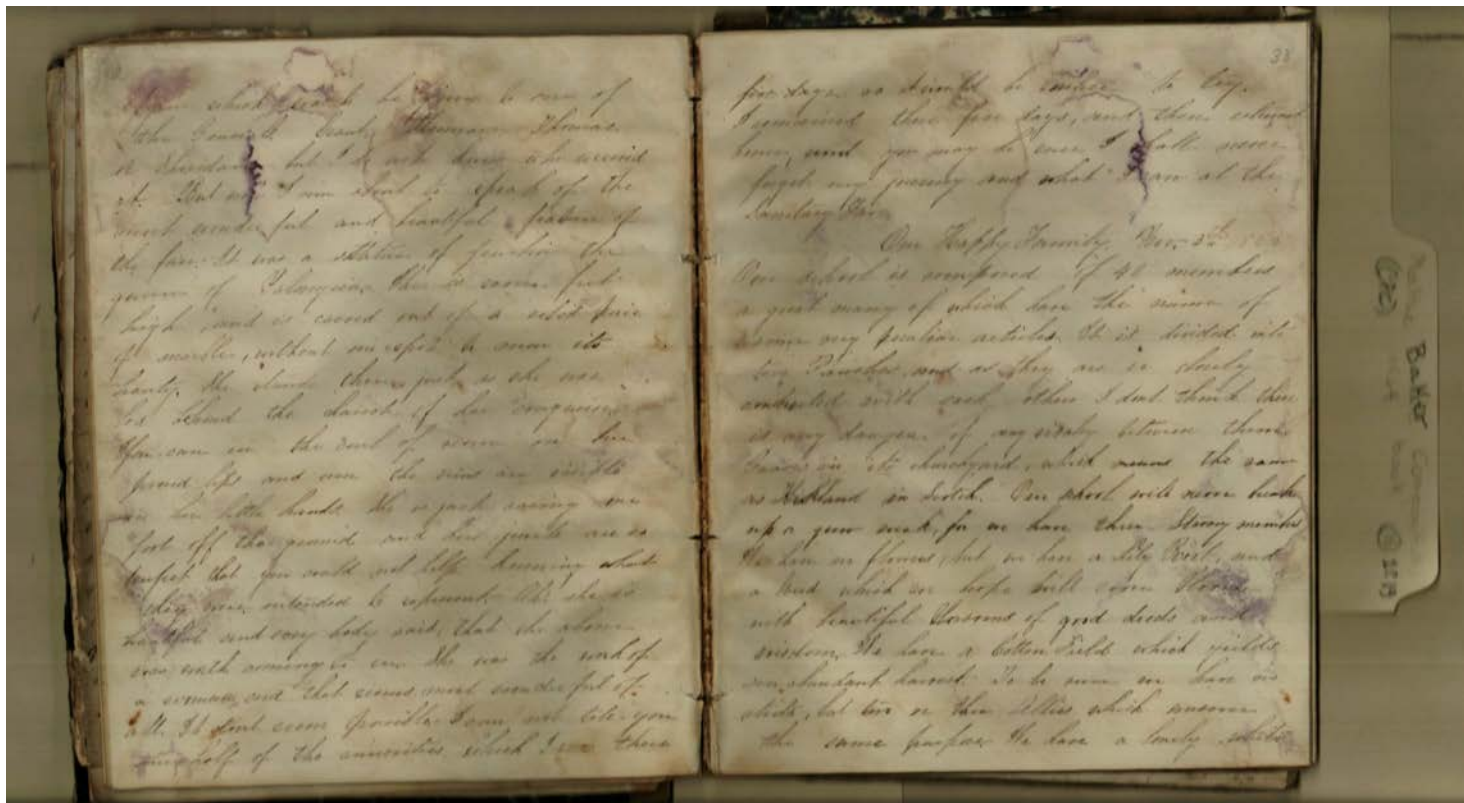 which
be given to one of
the Generals. Grant, Thomas
but I do not know who received
it. But now I am about to speak of the
most wonderful and beautiful feature of
the fair. It was a statue of Zenobia the
queen of Palmyra. She is seven feet
high, and is carved out of a solid piece
of marble, without one spot to mar its
beauty. She stands there just as she was
behind the chariot of her conqueror.
You can see the curl of scorn on her
proud lips and even the veins are visible
on her little hands. She is just raising one
foot off the ground and her jewels are so
perfect that you could not help knowing what
they were intended to represent. Oh! she is
beautiful and every body said, that she alone
was worth coming to see. She was the work of
a woman, and that seems most wonderful of
all. It dont seem possible. I can not tell you
one half of the curiosities which I saw there
38
five days, so I would be
to
I remained there five days, and then returned
home, and you may be sure I shall never
forget my journey and what I saw at the
Sanitary Fair.
Our Happy Family. Nov.
Our school is composed of 40 members
a great many of which have the names of
some very peculiar articles. It is divided into
two Parishes, and as they are so closely
connected with each other I dont think there
is any danger of any rivalry between them.
is its churchyard, which means the same
as Kirkland in Scotch. Our school will never break
up a year weak, for we have three Strong members
We have no flowers, but we have a
and
a Bud which we hope will soon Bloom
with beautiful blossoms of good deeds and
wisdom. We have a Cotton Field which yields
an abundant harvest. To be sure we have no
but two or three Allies which answer
the same purpose. We have a lovely white
Baxter